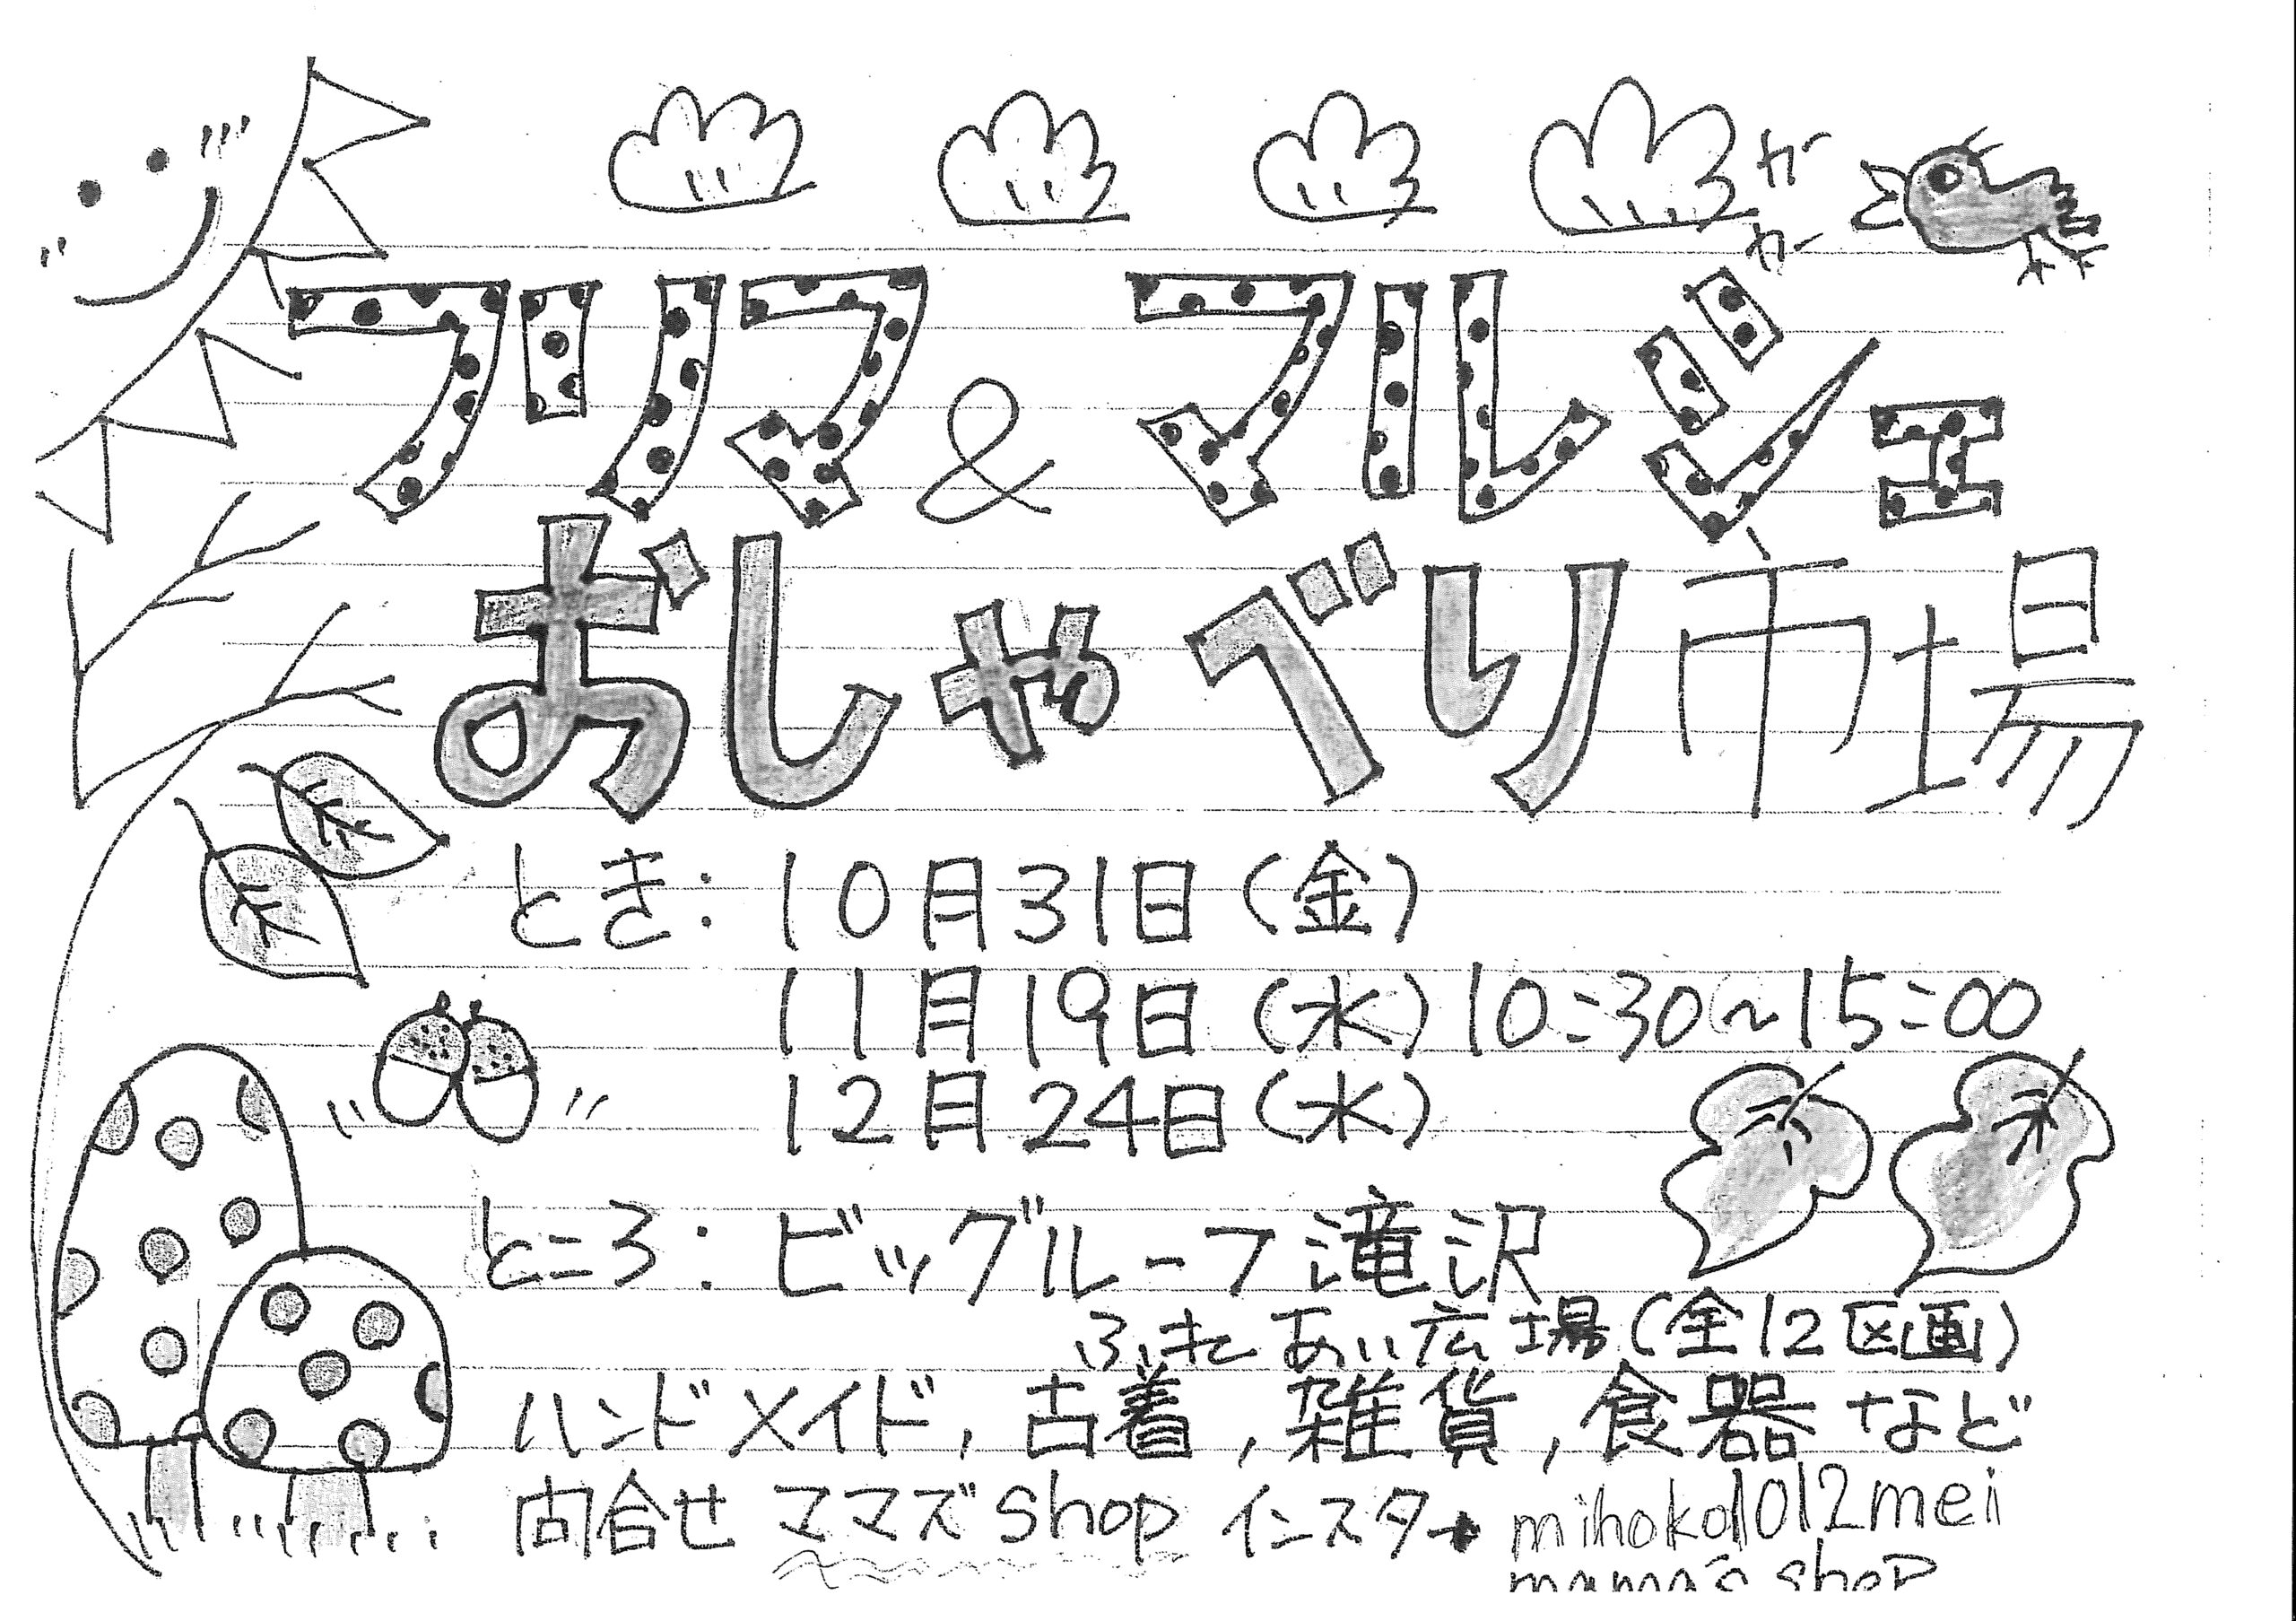 カー
カー
フリマ & マルシェ
おしゃべり市場
とき: 10月31日(金)
11月19日(水) 10:30~15:00
12月24日(水)
ところ: ビッグルーフ滝沢
ふれあい広場(全12区画)
ハンドメイド, 古着, 雑貨, 食器など
問合せ ママズshop インスタ→ mihoko1012mei
mama's shop